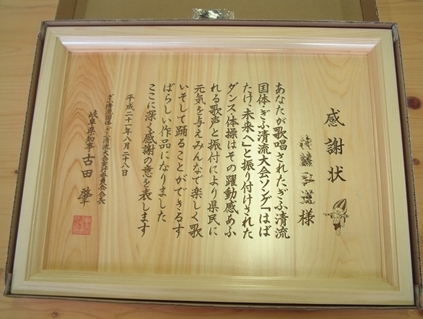 感謝状
様
あなたが歌唱されたぎふ清流
国体・ぎふ清流大会ソング「はば
たけ、未来へ」と振り付けされた
ダンス・体操はその躍動感あふ
れる歌声と振付により県民に
元気を与えみんなで楽しく歌
いそして踊ることができるす
ばらしい作品になりました
ここに深く感謝の意を表します
平成二十一年八月二十八日
ぎふ清流国体・ぎふ清流大会実行委員会会長
岐阜県知事 古田 肇